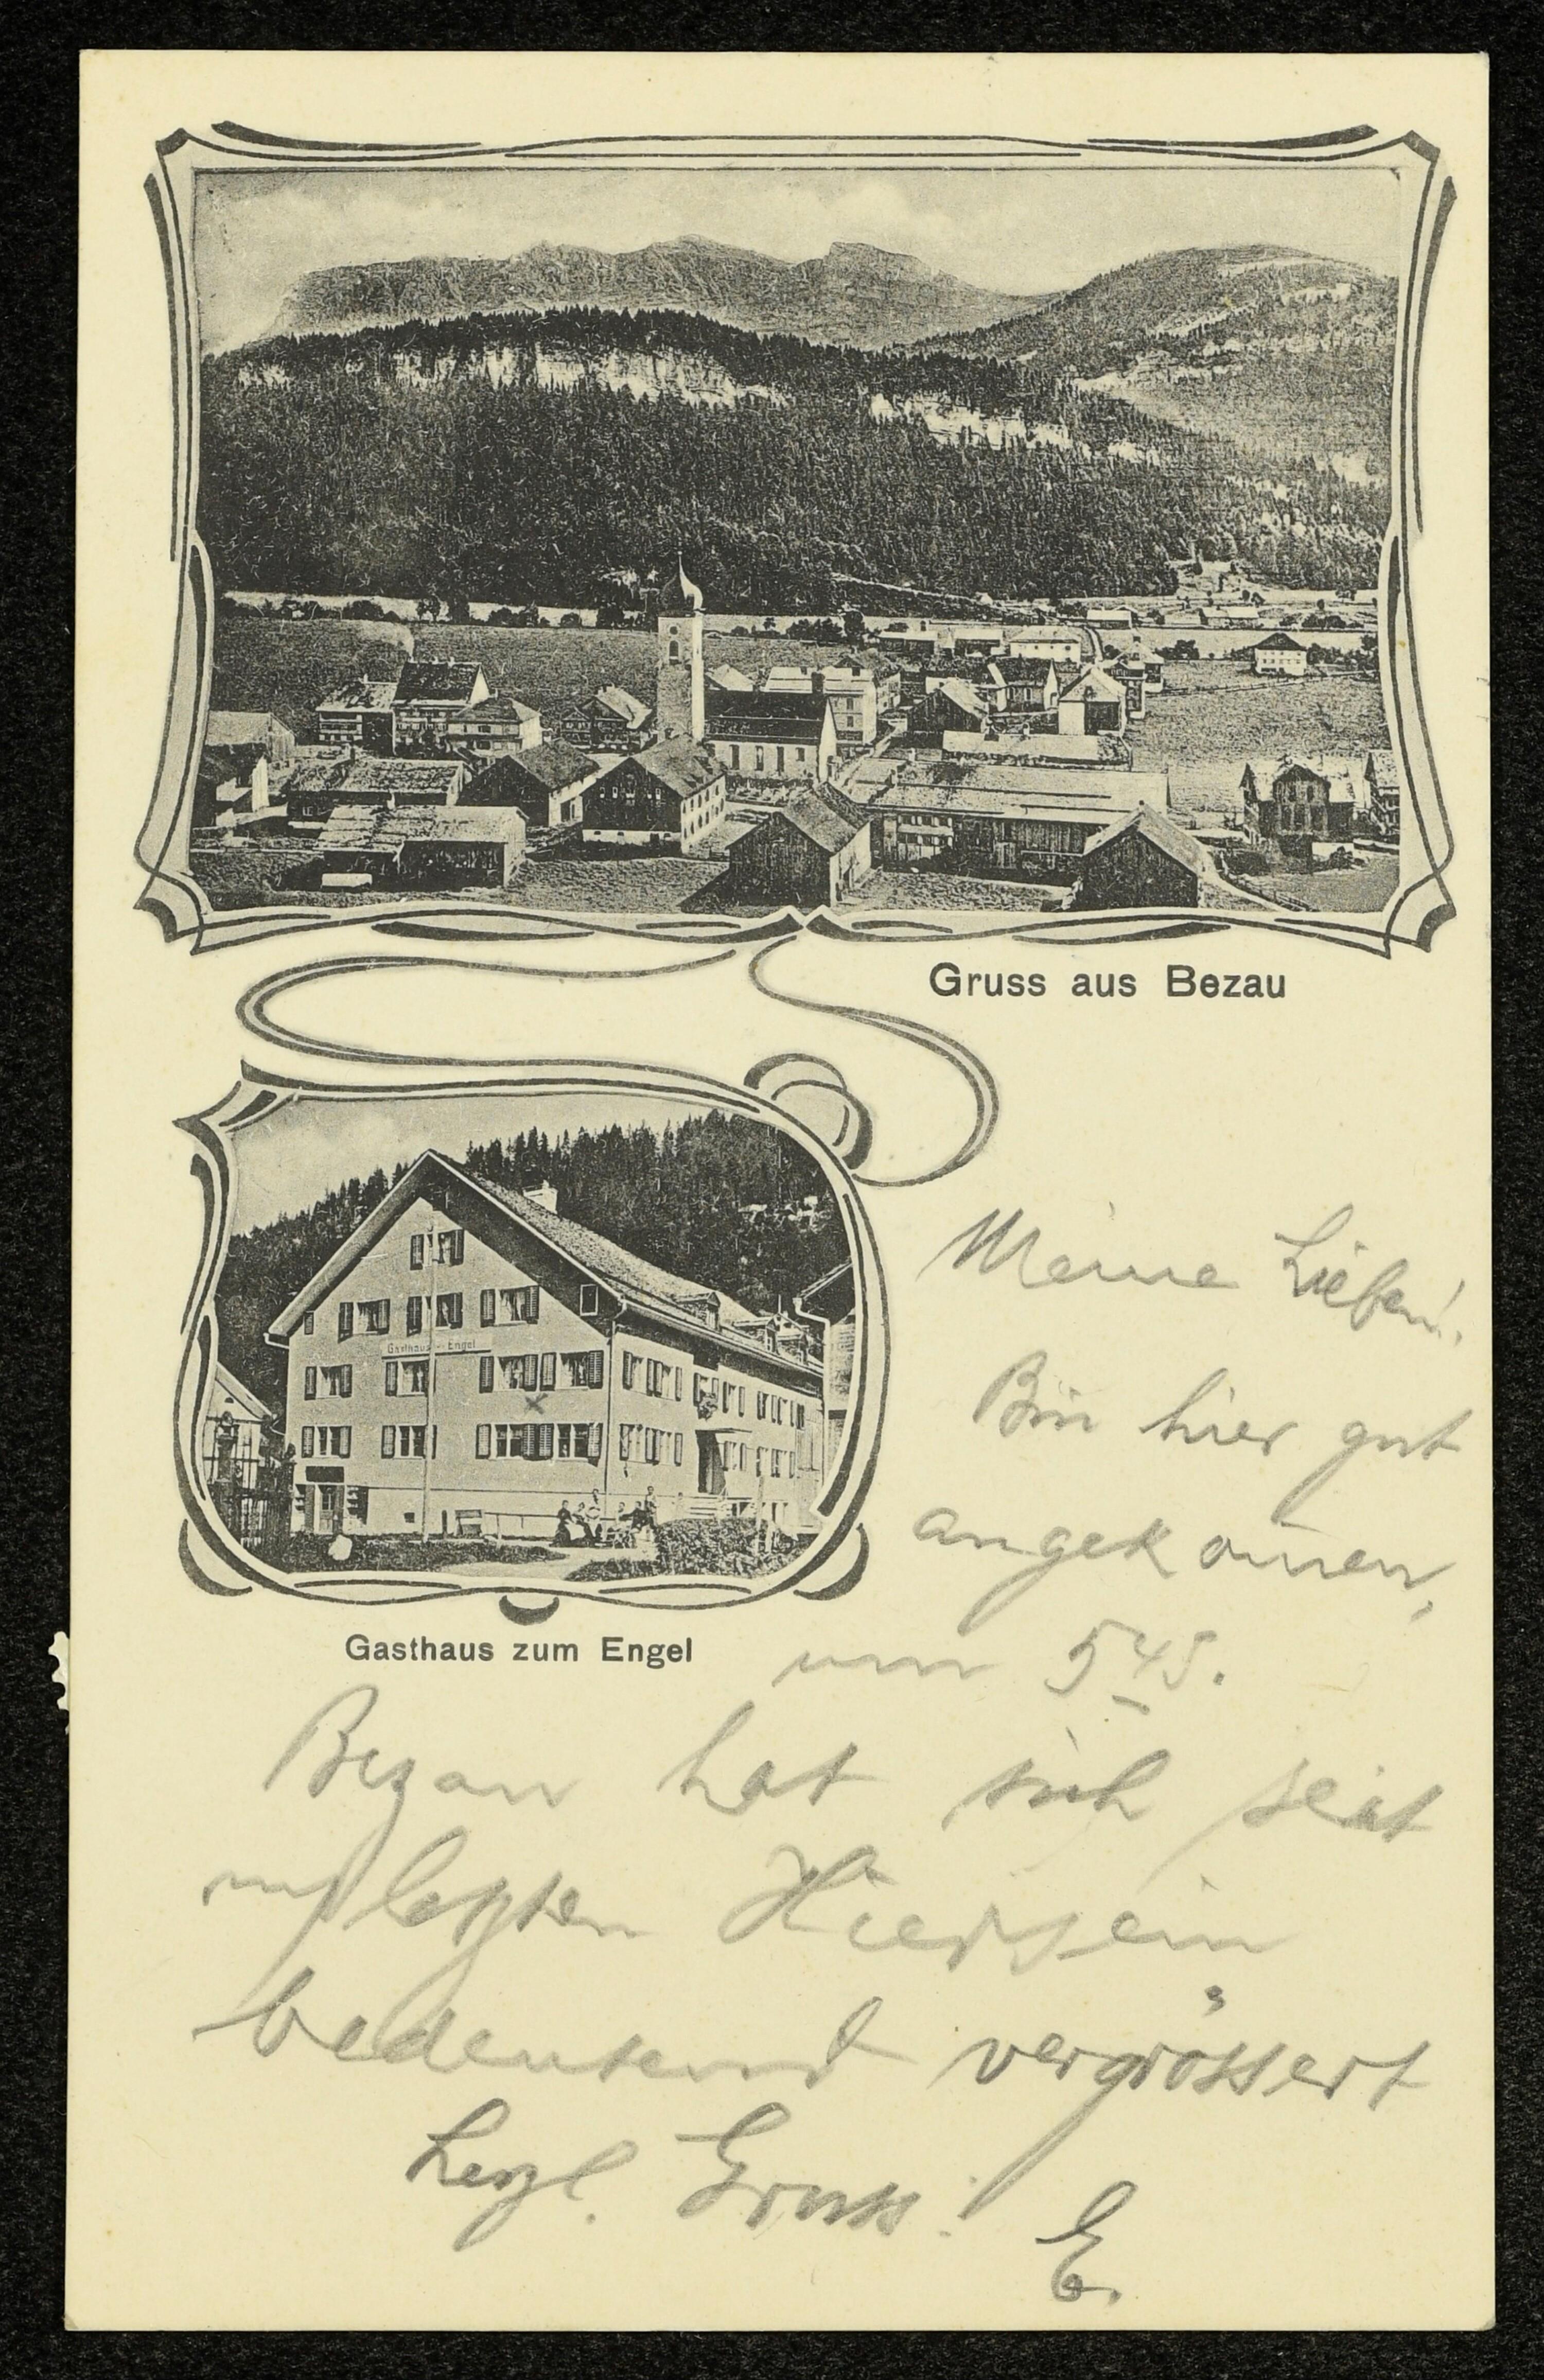 Gruss aus Bezau
Gasthaus z. Engel
Gasthaus zum Engel
Meine Lieben!
Bin hier gut
angekommen,
um 5 45.
Bezau hat sich seit
letzten Hiersein
bedeutend vergrössert
Herzl. Gruss! E.